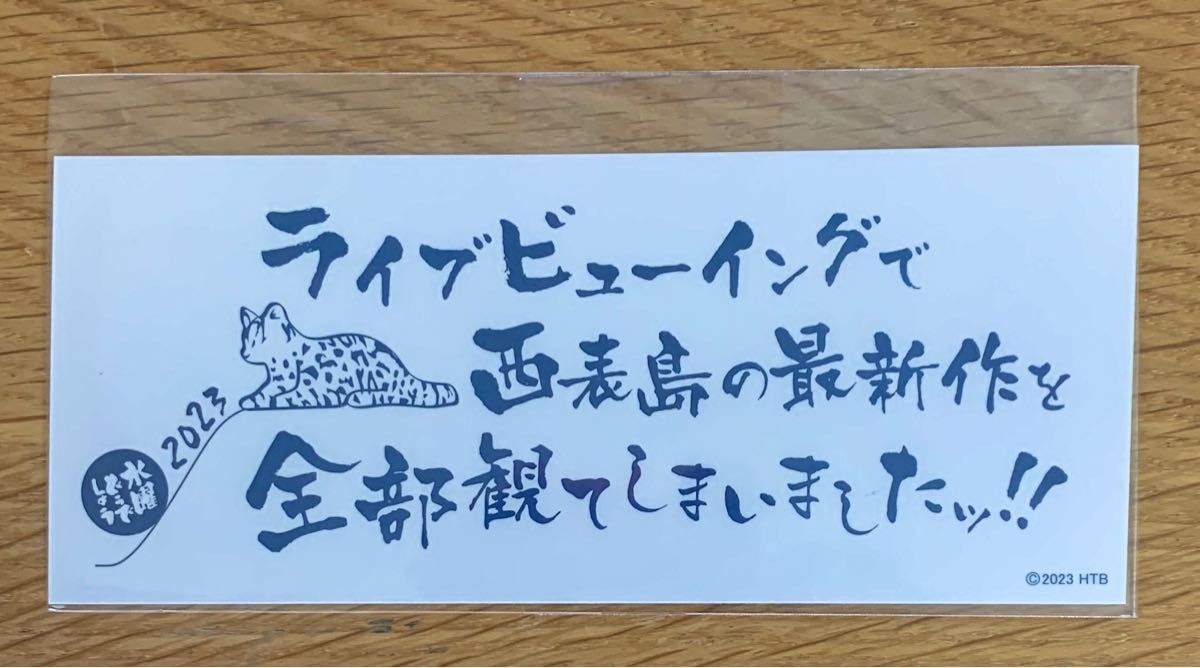 ライブビューイングで
西表島の最新作を
全部観てしまいましたッ!!
2023
水曜
どうで
しょう
©2023 HTB